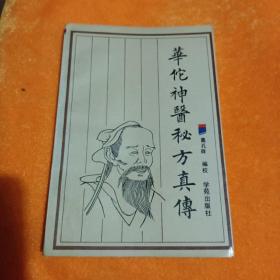 華佗神醫秘方真傳
編校
学苑出版社